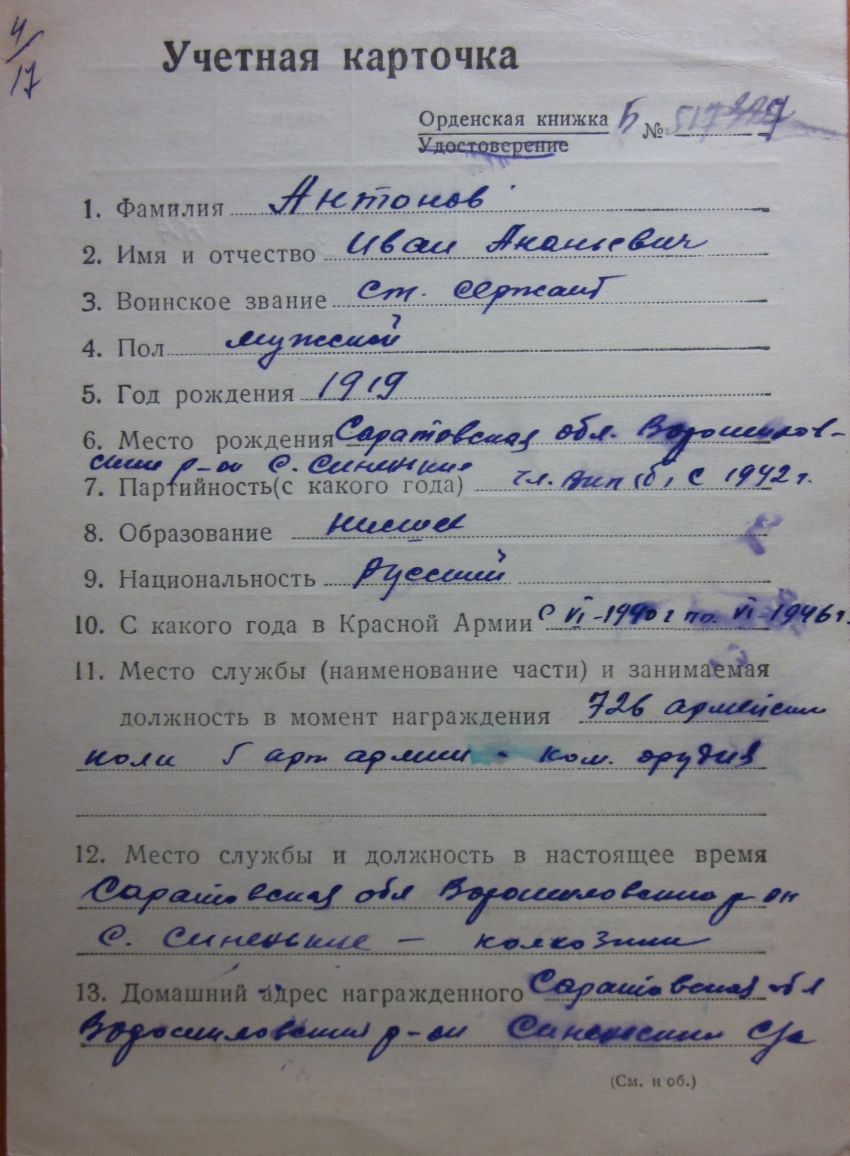 4/17
Учетная карточка
Орденская книжка Б № 517
Удостоверение
1. Фамилия Антонов
2. Имя и отчество Иван Ананьевич
3. Воинское звание ст. сержант
4. Пол мужской
5. Год рождения 1919
6. Место рождения Саратовская обл. Ворошилов-
ский р-он с. Синенькие
7. Партийность (с какого года) чл. ВКП(б) с 1942 г.
8. Образование низшее
9. Национальность Русский
10. С какого года в Красной Армии с VI-1940 г по VI-1946 г.
11. Место службы (наименование части) и занимаемая
должность в момент награждения 726 армейский
полк 5 арт армии - ком. орудия
12. Место службы и должность в настоящее время
Саратовская обл Ворошиловский р-он
с. Синенькие — колхозник
13. Домашний адрес награжденного Саратовская обл
Ворошиловский р-он Синенький с/с
(См. н об.)